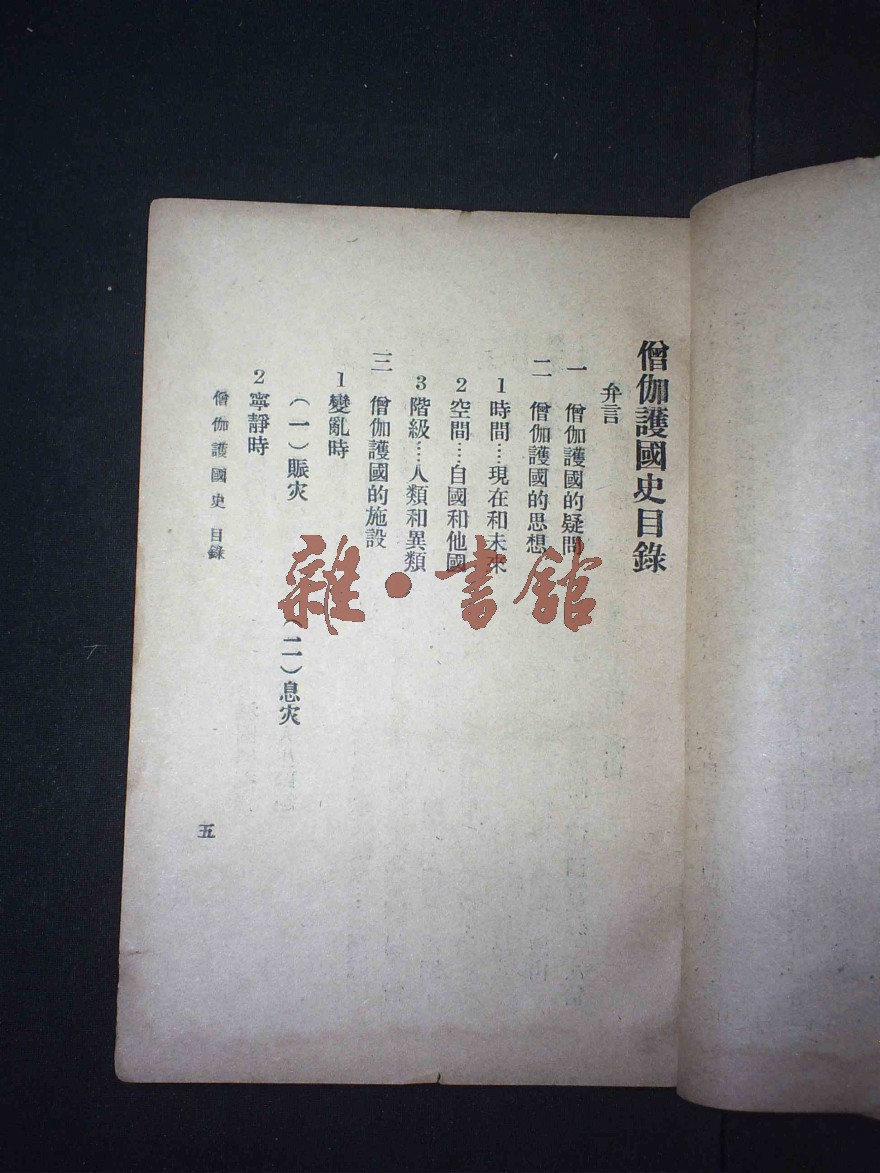 僧伽護國史目錄
弁言
一 僧伽護國的疑問
二 僧伽護國的思想
1 時間…現在和未來
2 空間…自國和他國
3 階級…人類和異類
三 僧伽護國的施設
1 變亂時
（一）賑灾 （二）息灾
2 寧靜時
僧伽護國史 目錄
五
雜·書館